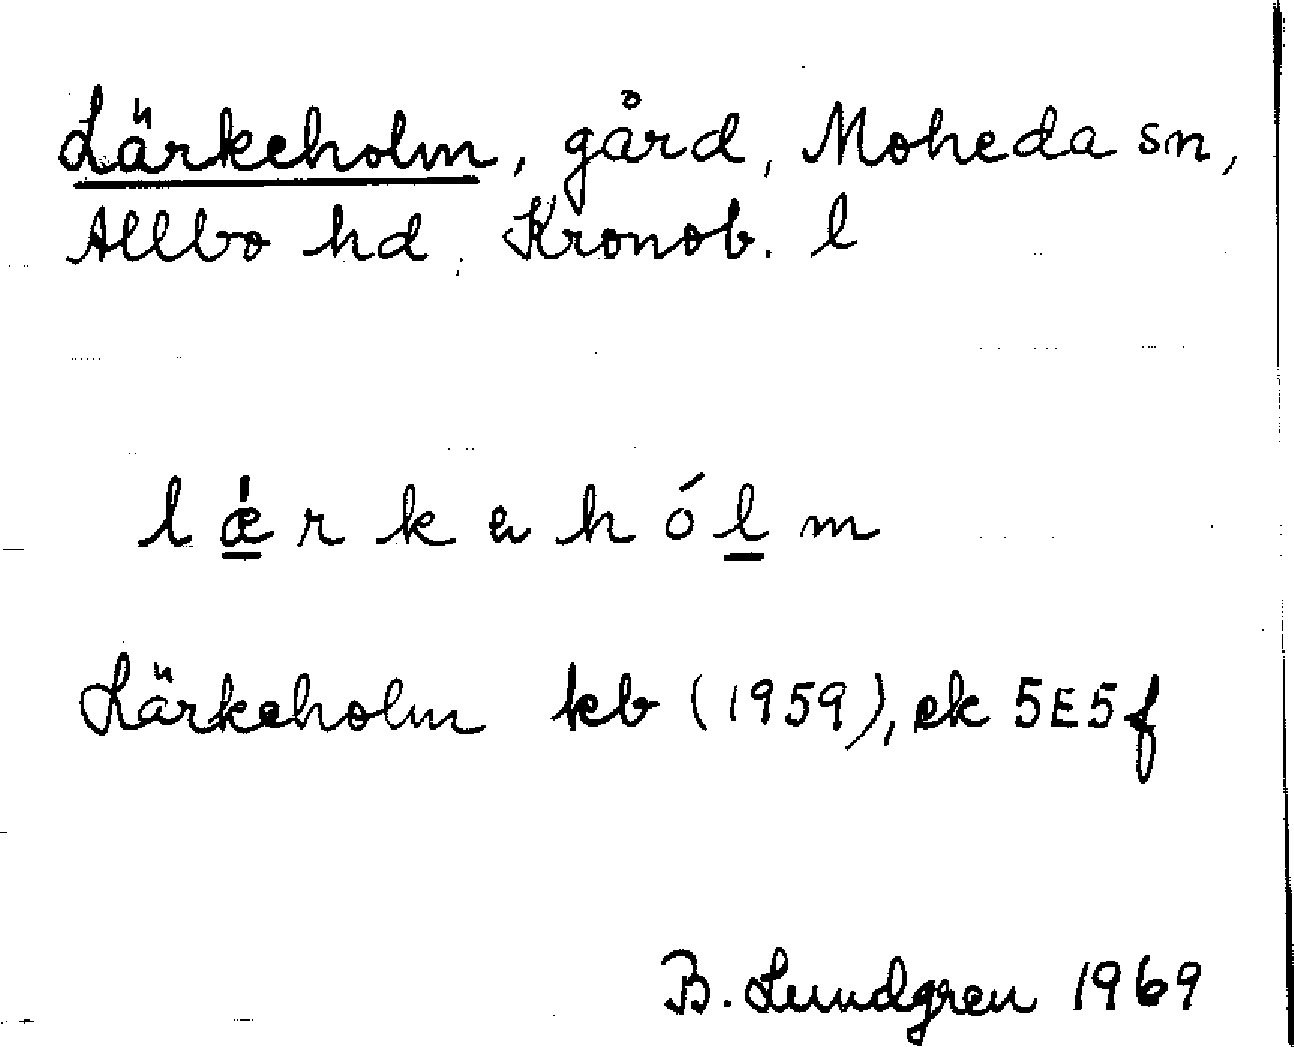 Lärkeholm, gård, Moheda sn,
Allbo hd, Kronob. l
l ǽ r k ə h ó l m
Lärkeholm kb (1959), ek 5E5f
B. Lundgren 1969